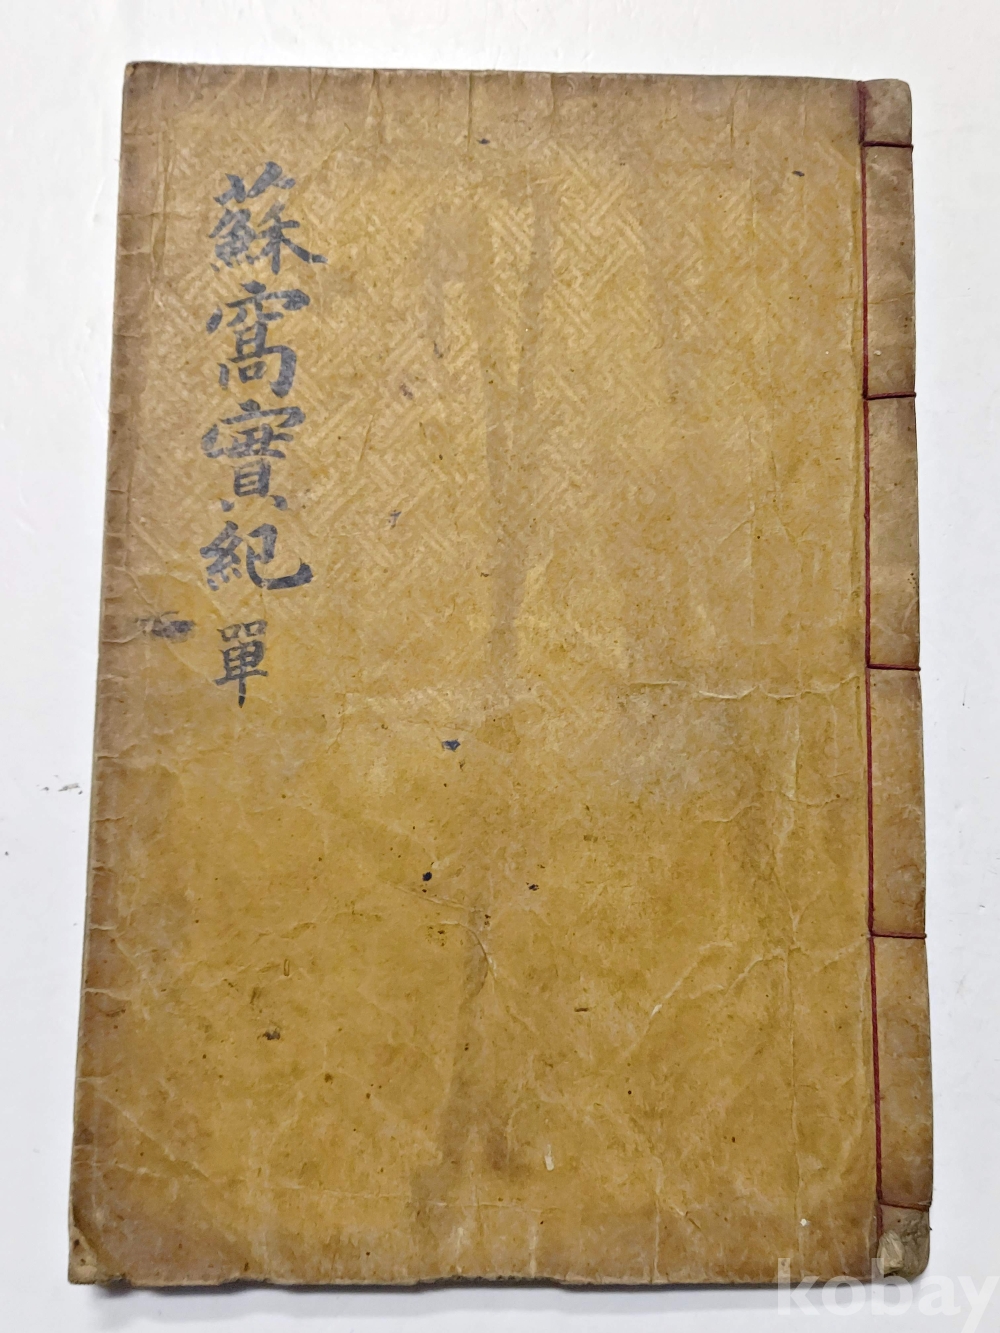 蘇窩實紀 單
kobay